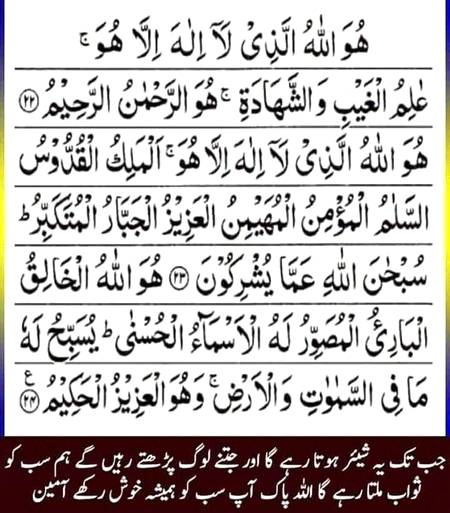 هُوَ اللّٰهُ الَّذِیْ لَاۤ اِلٰهَ اِلَّا هُوَ ۚ
عٰلِمُ الْغَیْبِ وَ الشَّهَادَةِ ۚ هُوَ الرَّحْمٰنُ الرَّحِیْمُ ﴿۲۲﴾
هُوَ اللّٰهُ الَّذِیْ لَاۤ اِلٰهَ اِلَّا هُوَ ۚ اَلْمَلِكُ الْقُدُّوْسُ
السَّلٰمُ الْمُؤْمِنُ الْمُهَیْمِنُ الْعَزِیْزُ الْجَبَّارُ الْمُتَكَبِّرُ ؕ
سُبْحٰنَ اللّٰهِ عَمَّا یُشْرِكُوْنَ ﴿۲۳﴾ هُوَ اللّٰهُ الْخَالِقُ
الْبَارِئُ الْمُصَوِّرُ لَهُ الْاَسْمَآءُ الْحُسْنٰی ؕ یُسَبِّحُ لَهٗ
مَا فِی السَّمٰوٰتِ وَ الْاَرْضِ ۚ وَهُوَ الْعَزِیْزُ الْحَكِیْمُ ﴿۲۴﴾ ع
جب تک یہ شیئر ہوتا رہے گا اور جتنے لوگ پڑھتے رہیں گے ہم سب کو
ثواب ملتا رہے گا اللہ پاک آپ سب کو ہمیشہ خوش رکھے آمین